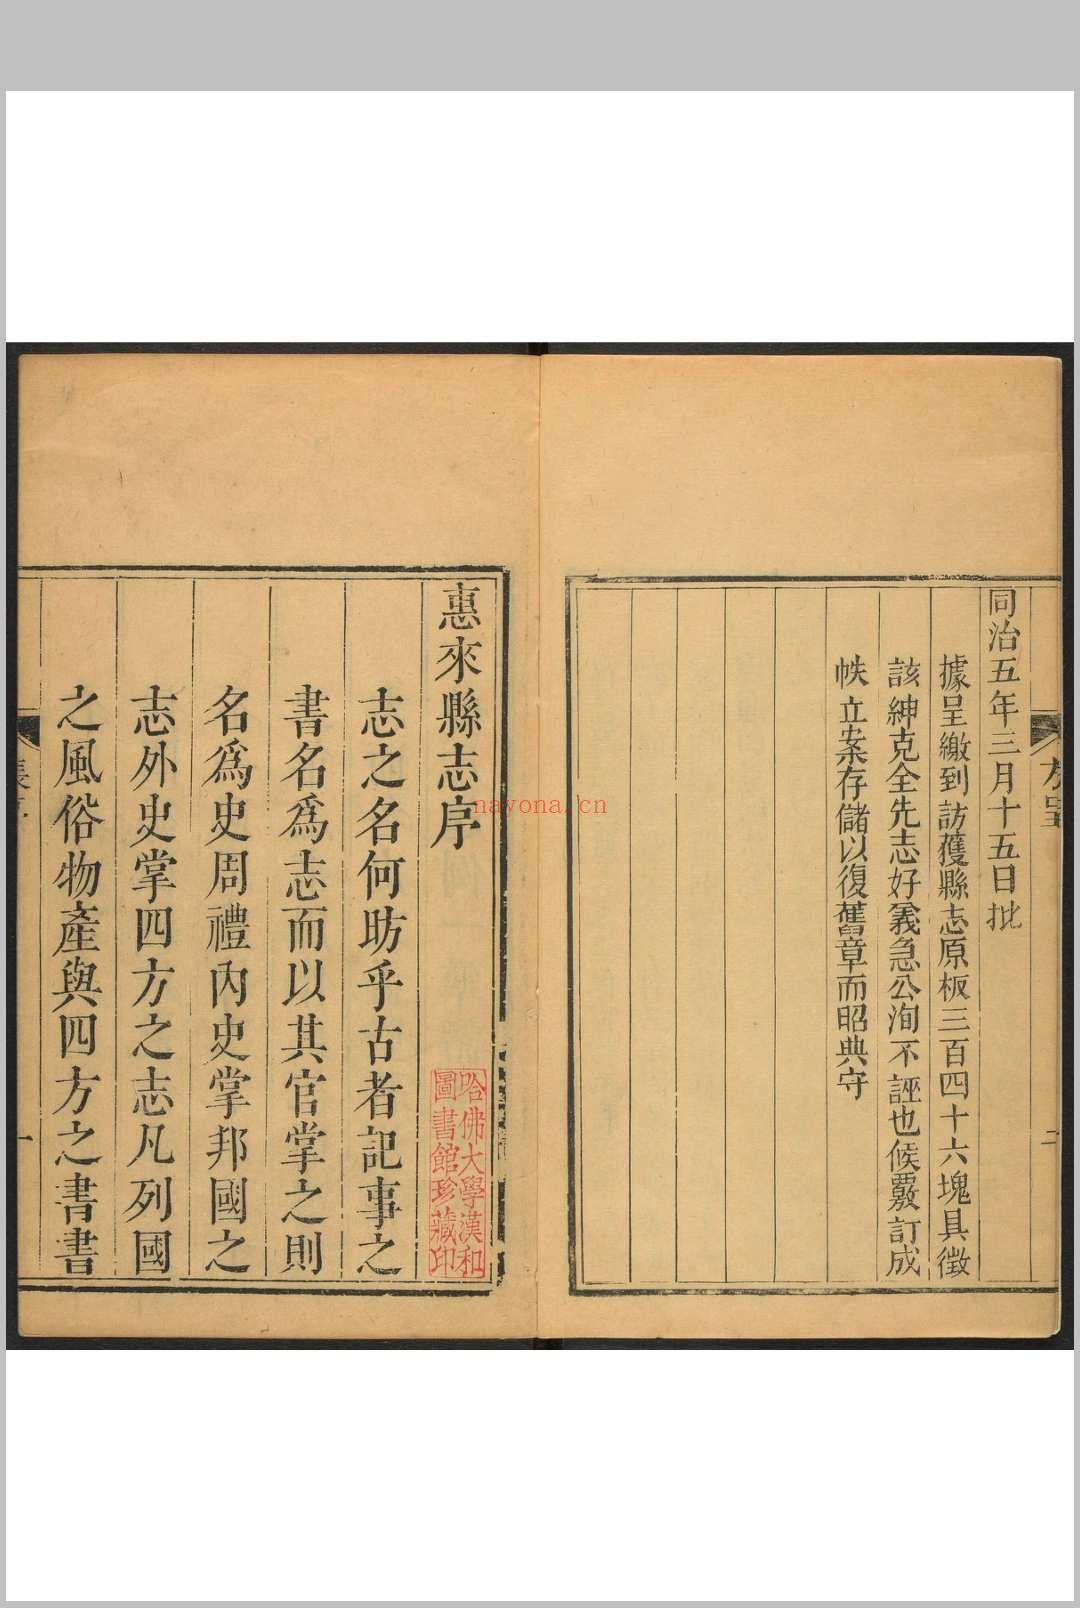 同治五年三月十五日批
據呈繳到訪獲縣志原板三百四十六塊具徵
該紳克全先志好義急公洵不誣也候覈訂成
帙立案存儲以復舊章而昭典守
二
惠來縣志序
志之名何昉乎古者記事之
書名爲志而以其官掌之則
名爲史周禮內史掌邦國之
志外史掌四方之志凡列國
之風俗物產與四方之書書
一
哈佛大學漢和
圖書館珍藏印
nayona.cn